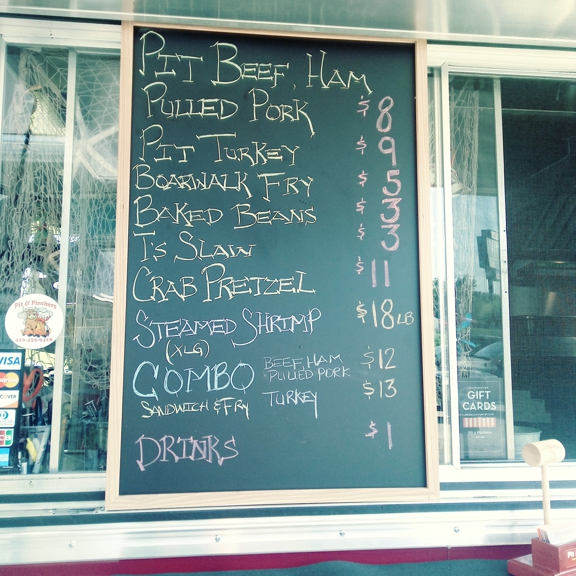 PIT BEEF, HAM
PULLED PORK $8
PIT TURKEY $9
BOARWALK FRY $5
BAKED BEANS $3
T'S SLAW $3
CRAB PRETZEL $11
STEAMED SHRIMP $18 LB
(XLG)
COMBO BEEF, HAM $12
PULLED PORK
SANDWICH & FRY TURKEY $13
DRINKS $1
Pit & Pinchers
VISA
GIFT
CARDS